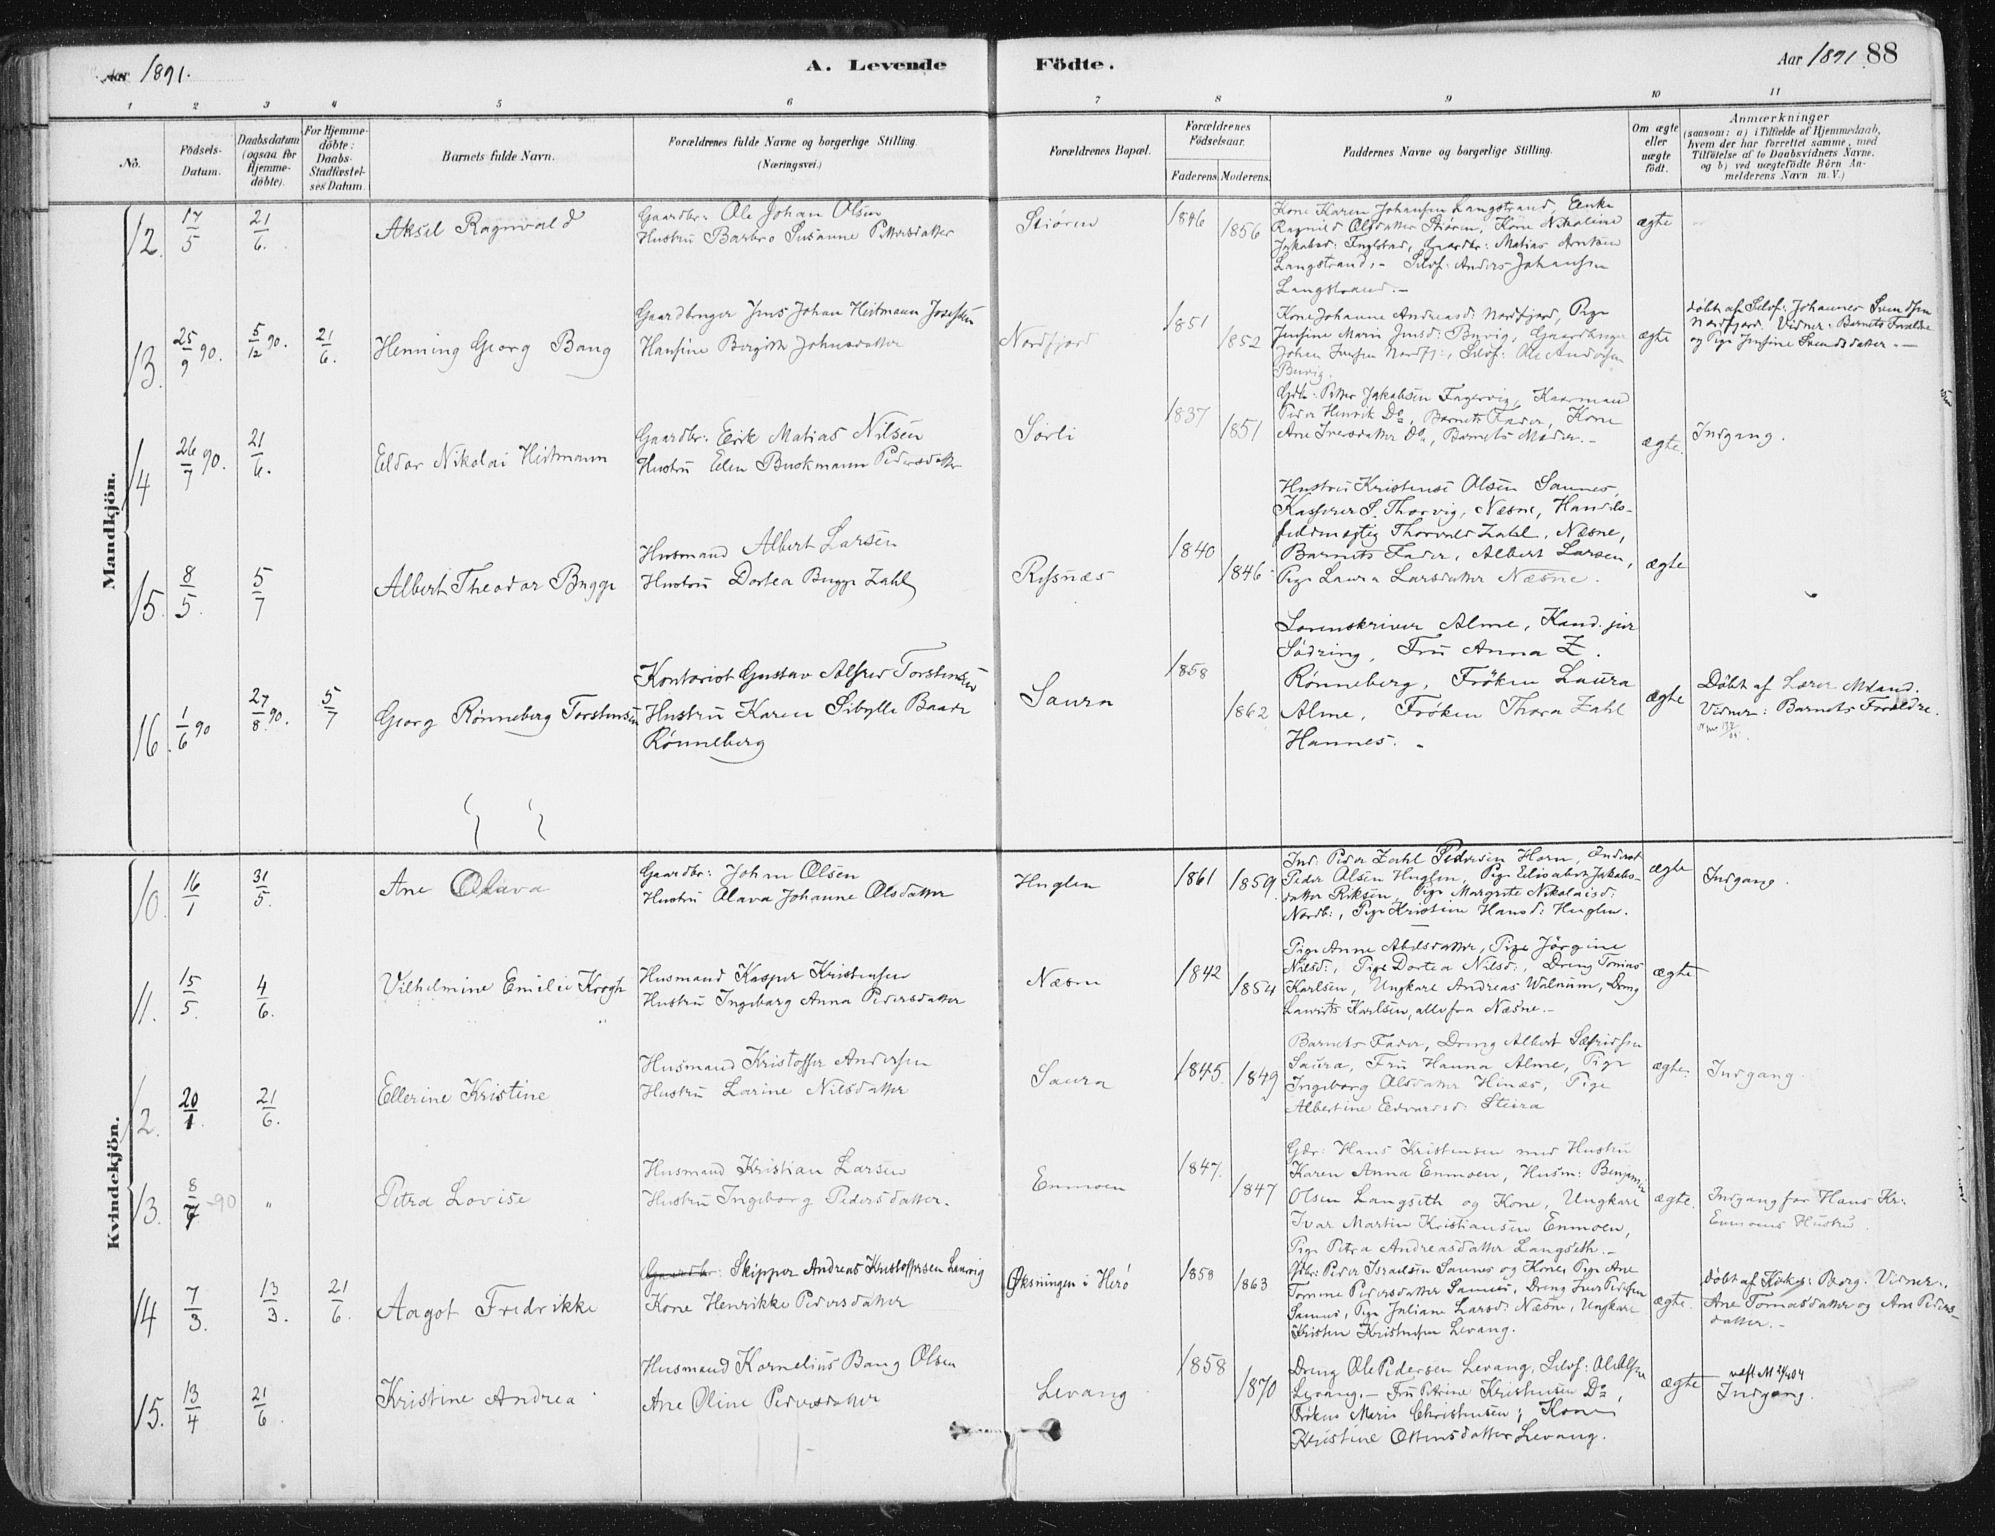 Aar 1891.
A. Levende Födte.
Aar 1891. 88
1 2 3 4 5 6 7 8 9 10 11
No.
Födsels-Datum.
Daabsdatum (ogsaa for Hjemme-döbte).
For Hjemme-döbte: Daabs-Stadfæstel-ses Datum.
Barnets fulde Navn.
Forældrenes fulde Navne og borgerlige Stilling (Næringsvei.)
Forældrenes Bopæl.
Forældrenes Födselsaar.
Faderens. Moderens.
Faddernes Navne og borgerlige Stilling.
Om ægte eller uægte født.
Anmærkninger
(saasom: a) i Tilfælde af Hjemmedaab,
hvem der har forrettet samme, med
Tilföielse af to Daabsvidners Navne.
og b) ved uægtefödte Börn An-
melderens Navn m. V.)
Mandkjön.
12. 17/5 21/6. Aksel Ragnvald
Gaardbr: Ole Johan Olsen
Hustru Barbro Susanne Pettersdatter
Stiören
1846 1856
Kone Karen Johansen Langstrand, Enke
Ragnild Olsdatter Stiören, Kone Nikoline
Jakobsd: Inglebad, Gaardbr: Matias Arntsen
Langstrand, - Selvf: Anders Johansen
Langstrand. -
ægte
13. 25/9 90. 5/12 90. 21/6. Henning Georg Bang
Gaardbruger Jens Johan Heitmann Josefsen
Hansine Bergitte Johnsdatter
Nordfjord
1851 1852
Kone Johanne Andreasd: Nordfjord, Pige
Jensine Marie Jensd: Buvig, Gaardbruger
Johan Jensen Nordfj:, Selvf: Ole Andersen
Buvig.
ægte
Døbt af Selvf: Johannes Svendsen
Nordfjord. Vidner: Barnets Forældre
og Pige Jensine Svendsdatter. -
14 26/7 90. 21/6. Eldor Nikolai Heitmann
Gaardbr: Erik Matias Nilsen
Hustru Elen Buskmann Pedersdatter
Sörli
1837 1851
Gdb: Petter Jakobsen Fagervig, Kaarmand
Peder Henrik Do, Barnets Fader, Kone
Ane Iversdatter Do, Barnets Moder. -
ægte.
Indgang.
15. 8/5. 5/7 Albert Theodor Bugge
Husmand Albert Larsen
Hustru Dortea Bugge Zahl
Ryssnæs
1840 1846
Hustru Kristense Olsen Saunes,
Kasper S. Thorvig, Næsne, Handels-
fuldmægtig Thorvald Zahl, Næsne,
Barnets Fader, Albert Larsen,
Pige Laura Larsdatter Næsne.
ægte
16. 1/6 90 27/8 90. 5/7 Georg Rønneberg Torstensen
Kontorist Gustav Alfred Torstensen
Hustru Karen Sibylle Baade
Rønneberg
Saura
1858 1862
Sorenskriver Alme, Kand. jur
Södring, Fru Anna Z.
Rønneberg, Fröken Laura
Alme, Fröken Thora Zahl
Hannes. -
ægte
Døbt af Lærer Meland.
Vidner: Barnets Forældre.
Kvindekjön.
10. 16/1 31/5. Ane Olava
Gaardbr: Johan Olsen
Hustru Olava Johanne Olsdatter
Huglen
1861 1859.
Ind: Peder Zahl Pedersen Horn, Inderst
Peder Olsen Huglen, Pige Elisabet Jakobs-
datter Riksen, Pige Margrete Nikolaisd:
Nordb:, Pige Kristine Hansd: Huglen.
ægte
Indgang.
11. 15/5. 4/6. Vilhelmine Emilie Krogh
Husmand Kasper Kristensen
Hustru Ingeborg Anna Pedersdatter
Næsne
1842 1854
Pige Anne Abelsdatter, Pige Jörgine
Nilsd:, Pige Dortea Nilsd:, Dreng Tomas
Karlsen, Ungkarl Andreas Walnum, Dreng
Laurits Karlsen, alle fra Næsne. -
ægte
12. 20/1. 21/6. Ellerine Kristine
Husmand Kristoffer Andersen
Hustru Larine Nilsdatter
Saura
1845. 1849
Barnets Fader, Dreng Albert Sefridsen
Saura, Fru Hanna Alme, Pige
Ingeborg Olsdatter Hinæs, Pige
Albertine Edvardsd: Steira
ægte.
Indgang.
13. 8/7 -90 " Petra Lovise
Husmand Kristian Larsen
Hustru Ingeborg Pedersdatter.
Enmoen
1847. 1847
Gdbr: Hans Kristensen med Hustru
Karen Anna Enmoen, Husm: Benjamin
Olsen Langseth og Kone, Ungkarl
Ivar Martin Kristiansen Enmoen,
Pige Petra Andreasdatter Langseth. -
ægte.
Indgang for Hans Kr:
Enmoens Hustru.
14 7/3. 13/3. 21/6. Aagot Fredrikke
Gaardbr: Skipper Andreas Kristoffersen Laurvig
Kone Henrikke Pedersdatter
Øksningen i Herö
1858 1863
Gdbr: Peder Israelsen Saunes og Kone, Pige Ane
Tomine Pedersdatter Saunes, Dreng Iver Pedersen
Saunes, Pige Juliane Larsd: Næsne, Ungkarl
Kristen Kristensen Levang.
ægte.
Døbt af Kirkes: Borg. Vidner:
Ane Tomasdatter og Ane Peders-
datter. -
15. 13/4 21/6. Kristine Andrea
Husmand Kornelius Bang Olsen
Ane Oline Pedersdatter
Levang
1858 1870
Dreng Ole Pedersen Levang, Selvf: Ole Olsen
Levang. - Fru Petrine Kristensen Do,
Fröken Marie Christensen, Kone
Kristine Ottensdatter Levang.
ægte
Indgang.